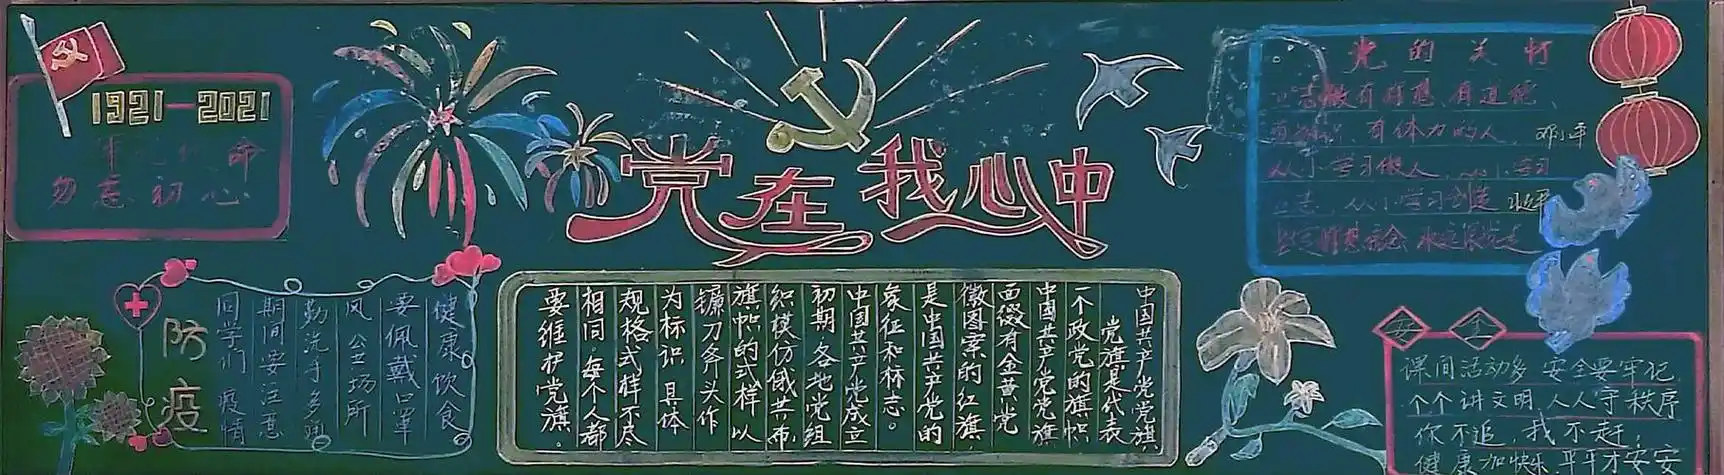 1921—2021
命
勿忘初心
党在我心中
防疫
同学们 疫情
期间要注意
勤洗手多通
风 公共场所
要佩戴口罩
健康饮食
中国共产党党旗,
党旗是代表
一个政党的旗帜
中国共产党党旗
面缀有金黄党
徽图案的红旗,
是中国共产党的
象征和标志。
中国共产党成立
初期,各地党组
织模仿俄共布
旗帜的式样以
镰刀斧头作
为标识 具体
规格式样不尽
相同 每个人都
要维护党旗。
党的关灯
有体力的人, 邓小平
从小学习做人,从小学习
立志,从小学习创造
安全
课间活动多 安全要牢记
个个讲文明 人人守秩序
你不追,我不赶,
健康加快乐 平平才安安